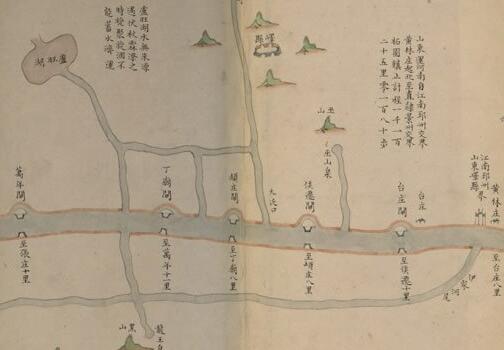 山東運河南自江南邳州交界
黃林庄起北至直隸景州交界
柘園鎮止計程一千一百
二十五里零一百八十步
嶧縣
盧旺湖水無來源
遇伏秋霖潦之
時
消不
能蓄水濟運
盧旺湖
巫山
巫山泉
黃林庄
江南邳州界
山東嶧縣
台庄
台庄閘
侯遷閘
大泛口
頓庄閘
丁廟閘
萬年閘
至台庄八里
至侯遷十里
至頓庄八里
至丁廟八里
至萬年十一里
至張庄十里
伊家河尾
龍王
黑山